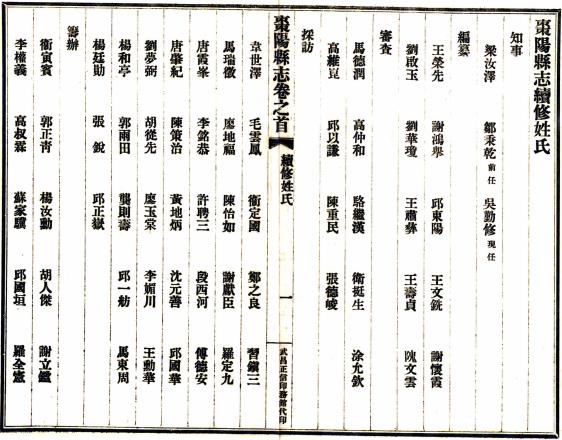 棗陽縣志續修姓氏
知事
梁汝澤 鄒秉乾前任 吳勤修現任
編纂
王榮先 謝鴻舉 邱東陽 王文銑 謝懷霞
劉啟玉 劉華瓊 王肅彝 王壽貞 隗文雲
審查
馬德潤 高仲和 駱繼漢 衛挺生 涂允欽
高維崑 邱以謙 陳重民 張德峻
採訪
棗陽縣志卷之首 續修姓氏 一 武昌正信印務館代印
韋世澤 毛雲鳳 衛定國 鄭之良 習鎭三
馬瑞徵 廖地福 陳怡如 謝獻臣 羅定九
唐霞峯 李銘恭 許聘三 段西河 傅德安
唐肇紀 陳策治 黃地炳 沈元善 邱國華
劉夢弼 胡從先 廖玉棠 李媚川 王勳華
楊和亭 郭雨田 龔則壽 邱一舫 馬東周
楊廷勛 張銳 邱正嶽
籌辦
衛寅賓 郭正青 楊汝勳 胡人傑 謝立鑑
李權義 高叔霖 蘇家驥 邱國垣 羅全憲